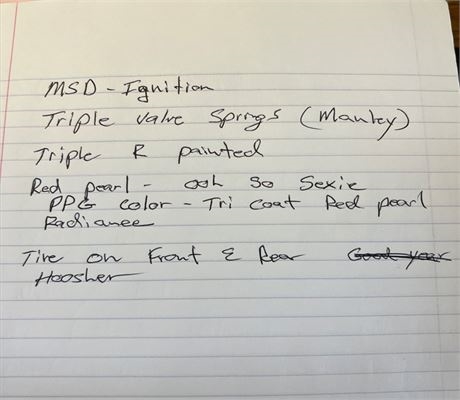 MSD - Ignition
Triple valve Springs (Manley)
Triple R painted
Red pearl - ooh so Sexie
PPG color - Tri coat Red pearl
Radiance
Tire on Front & Rear Good year
Hoosher